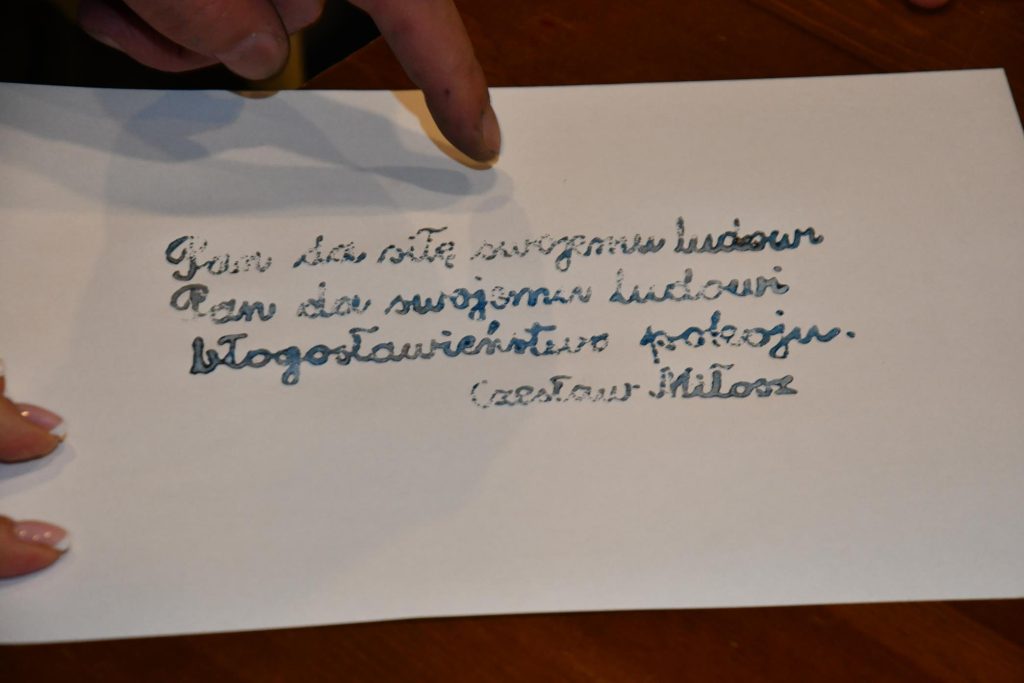 Pan da siłę swojemu ludowi
Pan da swojemu ludowi
błogosławieństwo pokoju.
Czesław Miłosz